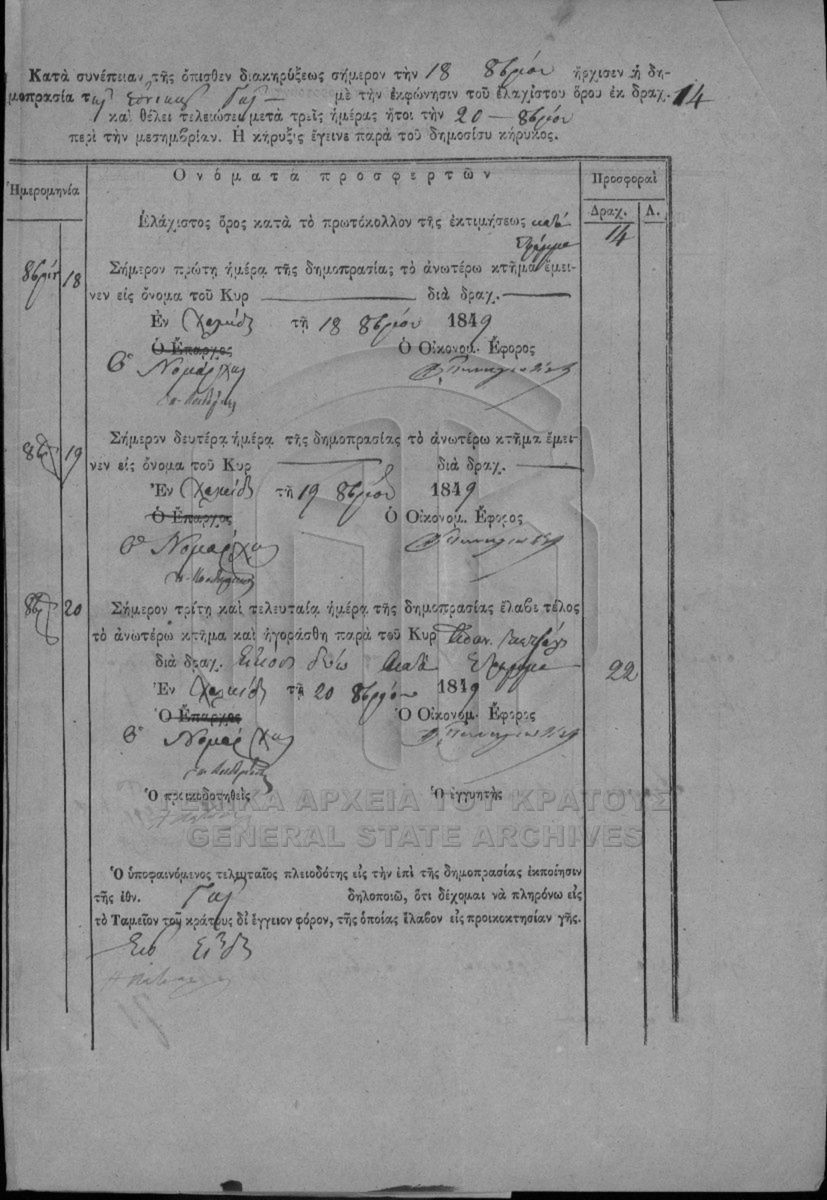 Κατὰ συνέπειαν τῆς ὄπισθεν διακηρύξεως σήμερον τὴν 18 8βρίου ἤρχισεν ἡ δη-
μοπρασία τῆς ἐθνικῆς Γῆς — μὲ τὴν ἐκφώνησιν τοῦ ἐλαχίστου ὅρου ἐκ δραχ. 14
καὶ θέλει τελειώσει μετὰ τρεῖς ἡμέρας ἤτοι τὴν 20 — 8βρίου
περὶ τὴν μεσημβρίαν. Ἡ κήρυξις ἔγεινε παρὰ τοῦ δημοσίου κήρυκος.
Ἡμερομηνία
Ὀνόματα προσφερτῶν
Προσφοραὶ
Δραχ. Λ.
Ἐλάχιστος ὅρος κατὰ τὸ πρωτόκολλον τῆς ἐκτιμήσεως κατὰ
Στρέμμα
14
8βρίου 18
Σήμερον πρώτῃ ἡμέρᾳ τῆς δημοπρασίας τὸ ἀνωτέρω κτῆμα ἔμει-
νεν εἰς ὄνομα τοῦ Κυρ — διὰ δραχ. —
Ἐν Χαλκίδι τῇ 18 8βρίου 1849
Ὁ Ἔπαρχος Ὁ Οἰκονομ. Ἔφορος
Ὁ Νομάρχης
8βρ 19
Σήμερον δευτέρᾳ ἡμέρᾳ τῆς δημοπρασίας τὸ ἀνωτέρω κτῆμα ἔμει-
νεν εἰς ὄνομα τοῦ Κυρ — διὰ δραχ. —
Ἐν Χαλκίδι τῇ 19 8βρίου 1849
Ὁ Ἔπαρχος Ὁ Οἰκονομ. Ἔφορος
Ὁ Νομάρχης
8βρ 20
Σήμερον τρίτῃ καὶ τελευταίᾳ ἡμέρᾳ τῆς δημοπρασίας ἔλαβε τέλος
τὸ ἀνωτέρω κτῆμα καὶ ἠγοράσθη παρὰ τοῦ Κυρ
διὰ δραχ. Εἴκοσι δύω κατὰ Στρέμμα — 22
Ἐν Χαλκίδι τῇ 20 8βρίου 1849
Ὁ Ἔπαρχος Ὁ Οἰκονομ. Ἔφορος
Ὁ Νομάρχης
Ὁ προικοδοτηθεὶς Ὁ ἐγγυητὴς
ΓΕΝΙΚΑ ΑΡΧΕΙΑ ΤΟΥ ΚΡΑΤΟΥΣ
GENERAL STATE ARCHIVES
Ὁ ὑποφαινόμενος τελευταῖος πλειοδότης εἰς τὴν ἐπὶ τῆς δημοπρασίας ἐκποίησιν
τῆς ἐθν. Γῆς δηλοποιῶ, ὅτι δέχομαι νὰ πληρόνω εἰς
τὸ Ταμεῖον τοῦ κράτους δι' ἔγγειον φόρον, τῆς ὁποίας ἔλαβον εἰς προικοκτησίαν γῆς.